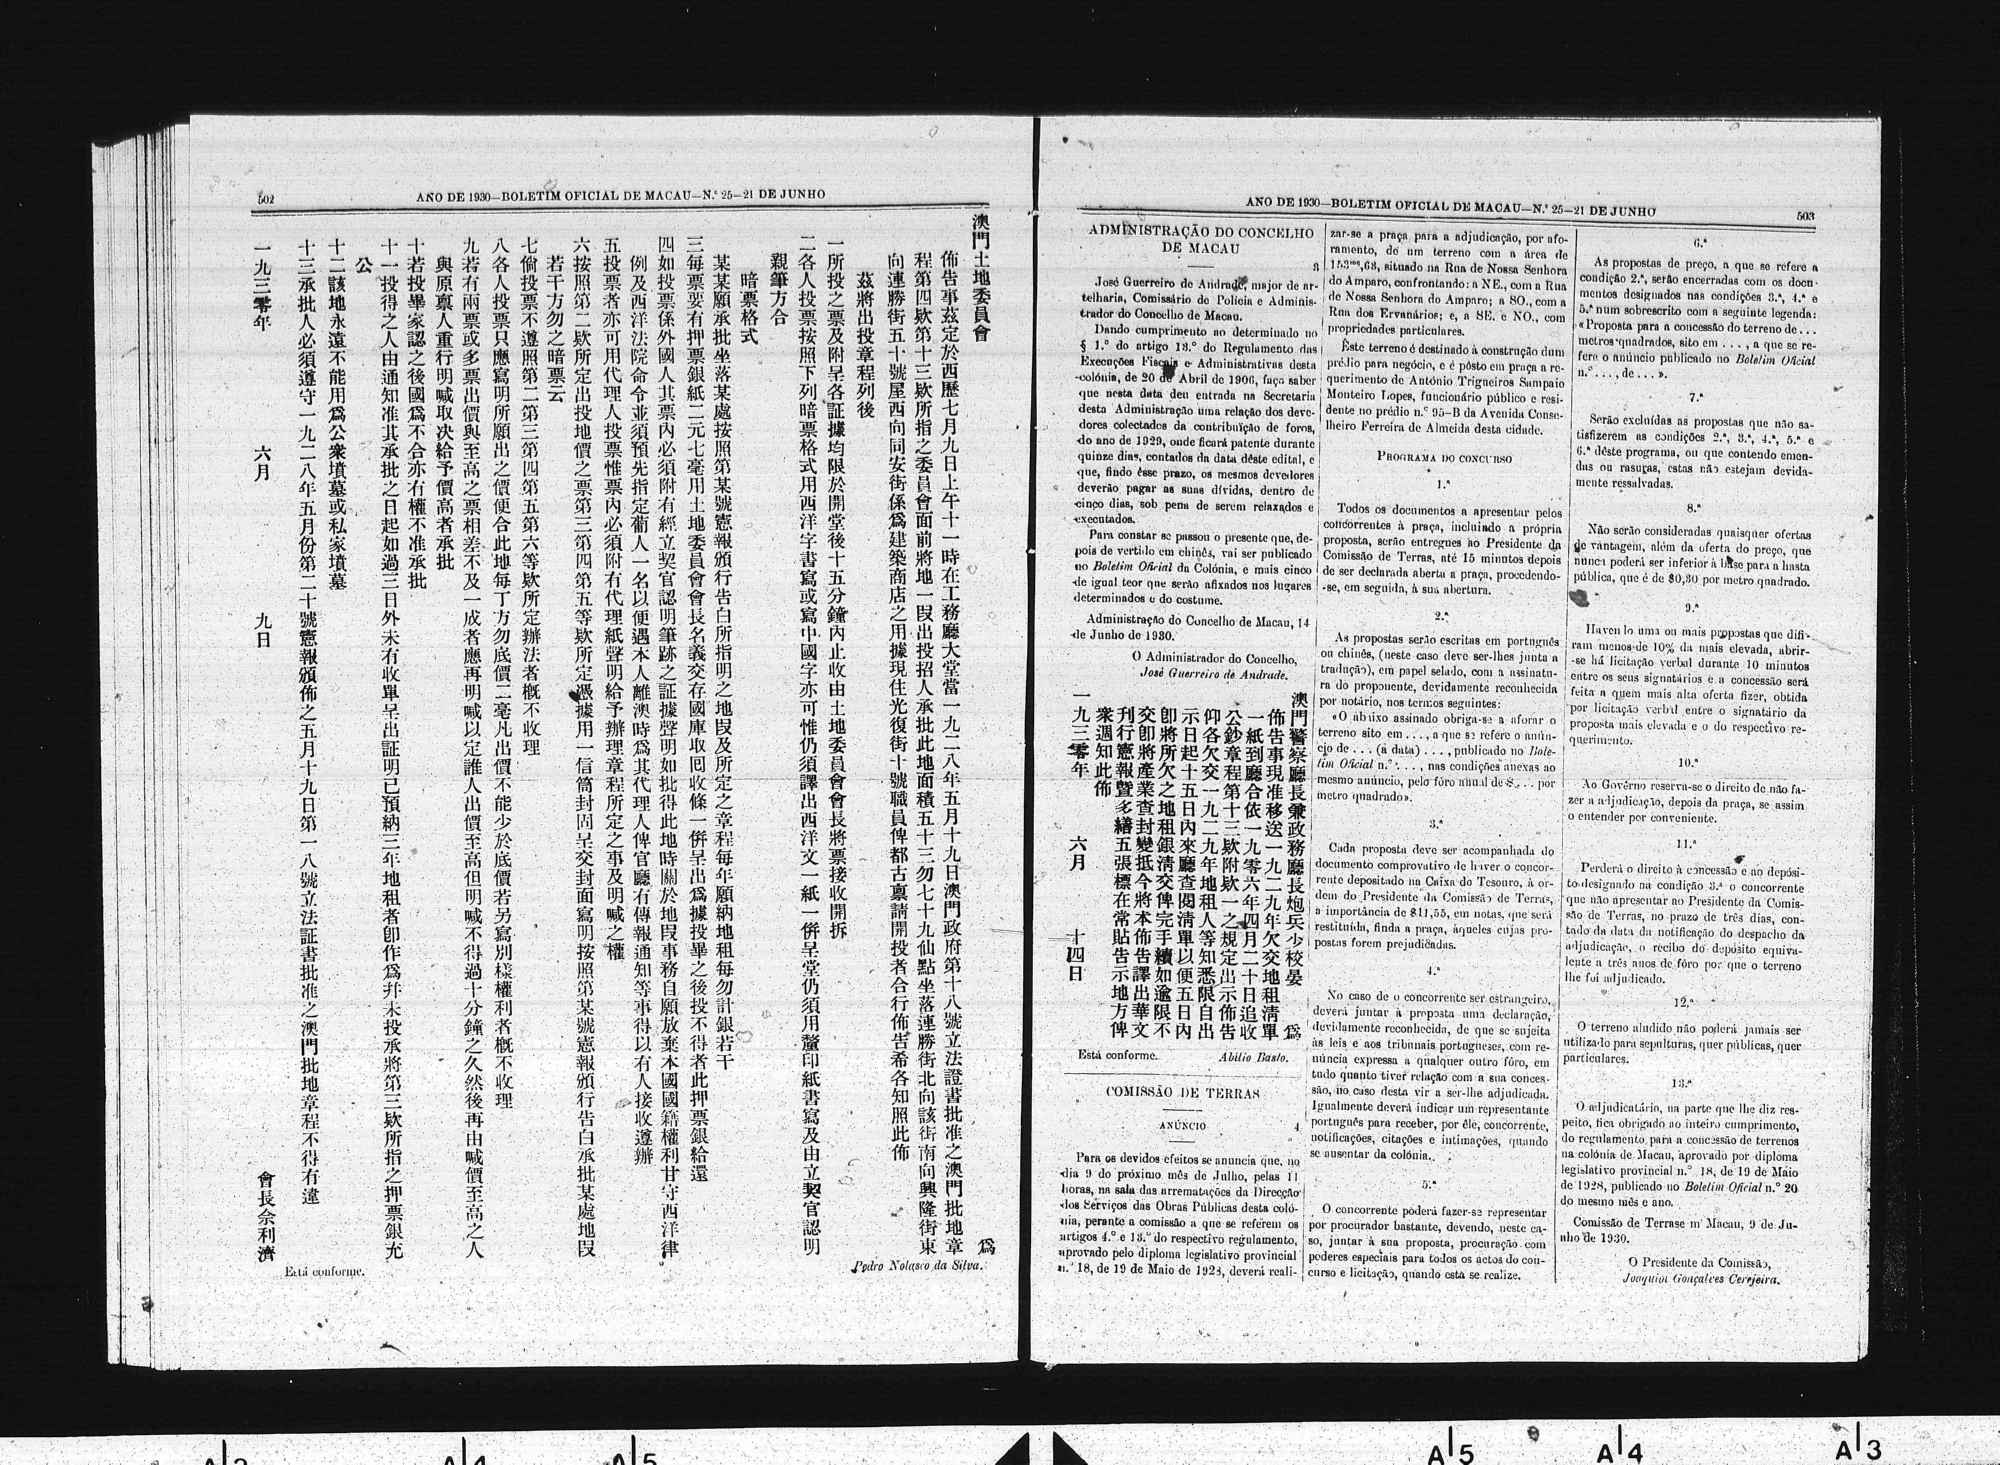 502
ANO DE 1930—BOLETIM OFICIAL DE MACAU—N.º 25—21 DE JUNHO
澳門土地委員會 爲
佈告事茲定於西歷七月九日上午十一時在工務廳大堂當一九二八年五月十九日澳門政府第十八號立法證書批准之澳門批地章
程第四欵第十三欵所指之委員會面前將地一段出投招人承批此地面積五十三勿七十九仙點坐落連勝街北向該街南向興隆街東
向連勝街五十號屋西向同安街係爲建築商店之用據現住光復街十號職員俾都古禀請開投者合行佈告希各知照此佈
茲將出投章程列後
一所投之票及附呈各証據均限於開堂後十五分鐘內止收由土地委員會會長將票接收開拆
二各人投票按照下列暗票格式用西洋字書寫或寫中國字亦可惟仍須譯出西洋文一紙一併呈堂仍須用釐印紙書寫及由立契官認明
親筆方合
暗票格式
某某願承批坐落某處按照第某號憲報頒行告白所指明之地段及所定之章程每年願納地租每勿計銀若干
三每票要有押票銀紙二元七毫用土地委員會會長名義交存國庫取囘收條一併呈出爲據投畢之後投不得者此押票銀給還
四如投票係外國人其票內必須附有經立契官認明筆跡之証據聲明如批得此地時關於地段事務自願放棄本國國籍權利甘守西洋律
例及西洋法院命令並須預先指定葡人一名以便遇本人離澳時爲其代理人俾官廳有傳報通知等事得以有人接收遵辦
五投票者亦可用代理人投票惟票內必須附有代理紙聲明給予辦理章程所定之事及明喊之權
六按照第二欵所定出投地價之票第三第四第五等欵所定憑據用一信筒封固呈交封面寫明按照第某號憲報頒行告白承批某處地段
若干方勿之暗票云
七倘投票不遵照第二第三第四第五第六等欵所定辦法者概不收理
八各人投票只應寫明所願出之價便合此地每丁方勿底價二毫凡出價不能少於底價若另寫別樣權利者概不收理
九若有兩票或多票出價與至高之票相差不及一成者應再明喊以定誰人出價至高但明喊不得過十分鐘之久然後再由喊價至高之人
與原禀人重行明喊取决給予價高者承批
十若投畢家認之後國爲不合亦有權不准承批
十一投得之人由通知准其承批之日起如過三日外未有收單呈出証明已預納三年地租者卽作爲幷未投承將第三欵所指之押票銀充
公
十二該地永遠不能用爲公衆墳墓或私家墳墓
十三承批人必須遵守一九二八年五月份第二十號憲報頒佈之五月十九日第一八號立法証書批准之澳門批地章程不得有違
一九三零年 六月 九日 會長佘利濟
Está conforme.
Pedro Nolasco da Silva.
ANO DE 1930—BOLETIM OFICIAL DE MACAU—N.º 25—21 DE JUNHO
503
ADMINISTRAÇÃO DO CONCELHO
DE MACAU
3
José Guerreiro de Andrade, major de ar-
telharia, Comissário de Polícia e Adminis-
trador do Concelho de Macau.
Dando cumprimento ao determinado no
§ 1.º do artigo 13.º do Regulamento das
Execuções Fiscais e Administrativas desta
colónia, de 20 de Abril de 1906, faço saber
que nesta data deu entrada na Secretaria
desta Administração uma relação dos deve-
dores colectados da contribuïção de foros,
do ano de 1929, onde ficará patente durante
quinze dias, contados da data dêste edital, e
que, findo êsse prazo, os mesmos devedores
deverão pagar as suas dívidas, dentro de
cinco dias, sob pena de serem relaxados e
executados.
Para constar se passou o presente que, de-
pois de vertido em chinês, vai ser publicado
no Boletim Oficial da Colónia, e mais cinco
de igual teor que serão afixados nos lugares
determinados e do costume.
Administração do Concelho de Macau, 14
de Junho de 1930.
O Administrador do Concelho,
José Guerreiro de Andrade.
澳門警察廳長兼政務廳長炮兵少校晏 爲
佈告事現准移送一九二九年欠交地租淸單
一紙到廳合依一九零六年四月二十日追收
公鈔章程第十三欵附欵一之規定出示佈告
仰各欠交一九二九年地租人等知悉限自出
示日起十五日內來廳查閱淸單以便五日內
卽將所欠之地租銀淸交俾完手續如逾限不
交卽將產業查封變抵今將本佈告譯出華文
刊行憲報曁多繕五張標在常貼告示地方俾
衆週知此佈
一九三零年 六月 十四日
Está conforme.
Abílio Basto.
COMISSÃO DE TERRAS
ANÚNCIO
4
Para os devidos efeitos se anuncia que, no
dia 9 do próximo mês de Julho, pelas 11
horas, na sala das arrematações da Direcção
dos Serviços das Obras Públicas desta coló-
nia, perante a comissão a que se referem os
artigos 4.º e 13.º do respectivo regulamento,
aprovado pelo diploma legislativo provincial
n.º 18, de 19 de Maio de 1928, deverá reali-
zar-se a praça para a adjudicação, por afo-
ramento, de um terreno com a área de
153m²,68, situado na Rua de Nossa Senhora
do Amparo, confrontando: a NE., com a Rua
de Nossa Senhora do Amparo; a SO., com a
Rua dos Ervanários; e, a SE. e NO., com
propriedades particulares.
Êste terreno é destinado à construção dum
prédio para negócio, e é pôsto em praça a re-
querimento de António Trigueiros Sampaio
Monteiro Lopes, funcionário público e resi-
dente no prédio n.º 95-B da Avenida Conse-
lheiro Ferreira de Almeida desta cidade.
PROGRAMA DO CONCURSO
1.ª
Todos os documentos a apresentar pelos
concorrentes à praça, incluindo a própria
proposta, serão entregues ao Presidente da
Comissão de Terras, até 15 minutos depois
de ser declarada aberta a praça, procedendo-
-se, em seguida, à sua abertura.
2.ª
As propostas serão escritas em português
ou chinês, (neste caso deve ser-lhes junta a
tradução), em papel selado, com a assinatu-
ra do proponente, devidamente reconhecida
por notário, nos termos seguintes:
«O abaixo assinado obriga-se a aforar o
terreno sito em . . . , a que se refere o anún-
cio de . . . (a data) . . . , publicado no Bole-
tim Oficial n.º . . . , nas condições anexas ao
mesmo anúncio, pelo fôro anual de $. . . por
metro quadrado».
3.ª
Cada proposta deve ser acompanhada do
documento comprovativo de haver o concor-
rente depositado na Caixa do Tesouro, à or-
dem do Presidente da Comissão de Terras,
a importância de $11,55, em notas, que será
restituída, finda a praça, àqueles cujas pro-
postas forem prejudicadas.
4.ª
No caso de o concorrente ser estrangeiro,
deverá juntar à proposta uma declaração,
devidamente reconhecida, de que se sujeita
às leis e aos tribunais portugueses, com re-
núncia expressa a qualquer outro fôro, em
tudo quanto tiver relação com a sua conces-
são, no caso desta vir a ser-lhe adjudicada.
Igualmente deverá indicar um representante
português para receber, por êle, concorrente,
notificações, citações e intimações, quando
se ausentar da colónia.
5.ª
O concorrente poderá fazer-se representar
por procurador bastante, devendo, neste ca-
so, juntar à sua proposta, procuração com
poderes especiais para todos os actos do con-
curso e licitação, quando esta se realize.
6.ª
As propostas de preço, a que se refere a
condição 2.ª, serão encerradas com os docu-
mentos designados nas condições 3.ª, 4.ª e
5.ª num sobrescrito com a seguinte legenda:
«Proposta para a concessão do terreno de . . .
metros quadrados, sito em . . . , a que se re-
fere o anúncio publicado no Boletim Oficial
n.º . . . , de . . . ».
7.ª
Serão excluídas as propostas que não sa-
tisfizerem as condições 2.ª, 3.ª, 4.ª, 5.ª e
6.ª dêste programa, ou que contendo emen-
das ou rasuras, estas não estejam devida-
mente ressalvadas.
8.ª
Não serão consideradas quaisquer ofertas
de vantagem, além da oferta do preço, que
nunca poderá ser inferior à base para a hasta
pública, que é de $0,30 por metro quadrado.
9.ª
Havendo uma ou mais propostas que difi-
ram menos de 10% da mais elevada, abrir-
-se há licitação verbal durante 10 minutos
entre os seus signatários e a concessão será
feita a quem mais alta oferta fizer, obtida
por licitação verbal entre o signatário da
proposta mais elevada e o do respectivo re-
querimento.
10.ª
Ao Govêrno reserva-se o direito de não fa-
zer a adjudicação, depois da praça, se assim
o entender por conveniente.
11.ª
Perderá o direito à concessão e ao depósi-
to designado na condição 3.ª o concorrente
que não apresentar ao Presidente da Comis-
são de Terras, no prazo de três dias, con-
tado da data da notificação do despacho da
adjudicação, o recibo do depósito equiva-
lente a três anos de fôro por que o terreno
lhe foi adjudicado.
12.ª
O terreno aludido não poderá jamais ser
utilizado para sepulturas, quer públicas, quer
particulares.
13.ª
O adjudicatário, na parte que lhe diz res-
peito, fica obrigado ao inteiro cumprimento,
do regulamento para a concessão de terrenos
na colónia de Macau, aprovado por diploma
legislativo provincial n.º 18, de 19 de Maio
de 1928, publicado no Boletim Oficial n.º 20
do mesmo mês e ano.
Comissão de Terrase m Macau, 9 de Ju-
nho de 1930.
O Presidente da Comissão,
Joaquim Gonçalves Cerejeira.
A 5
A 4
A 3